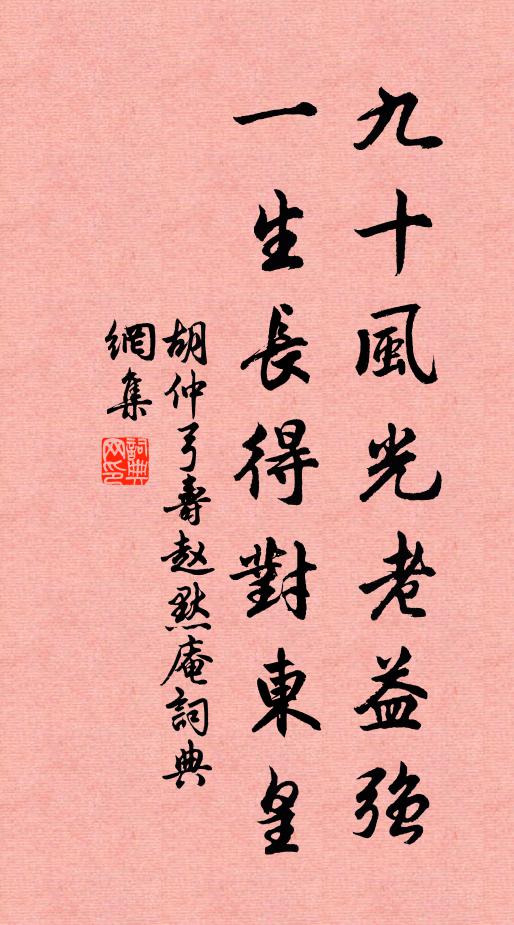 九十風光老益強
一生長得對東皇
胡仲弓壽赵默庵詞典
網集
詞典網印